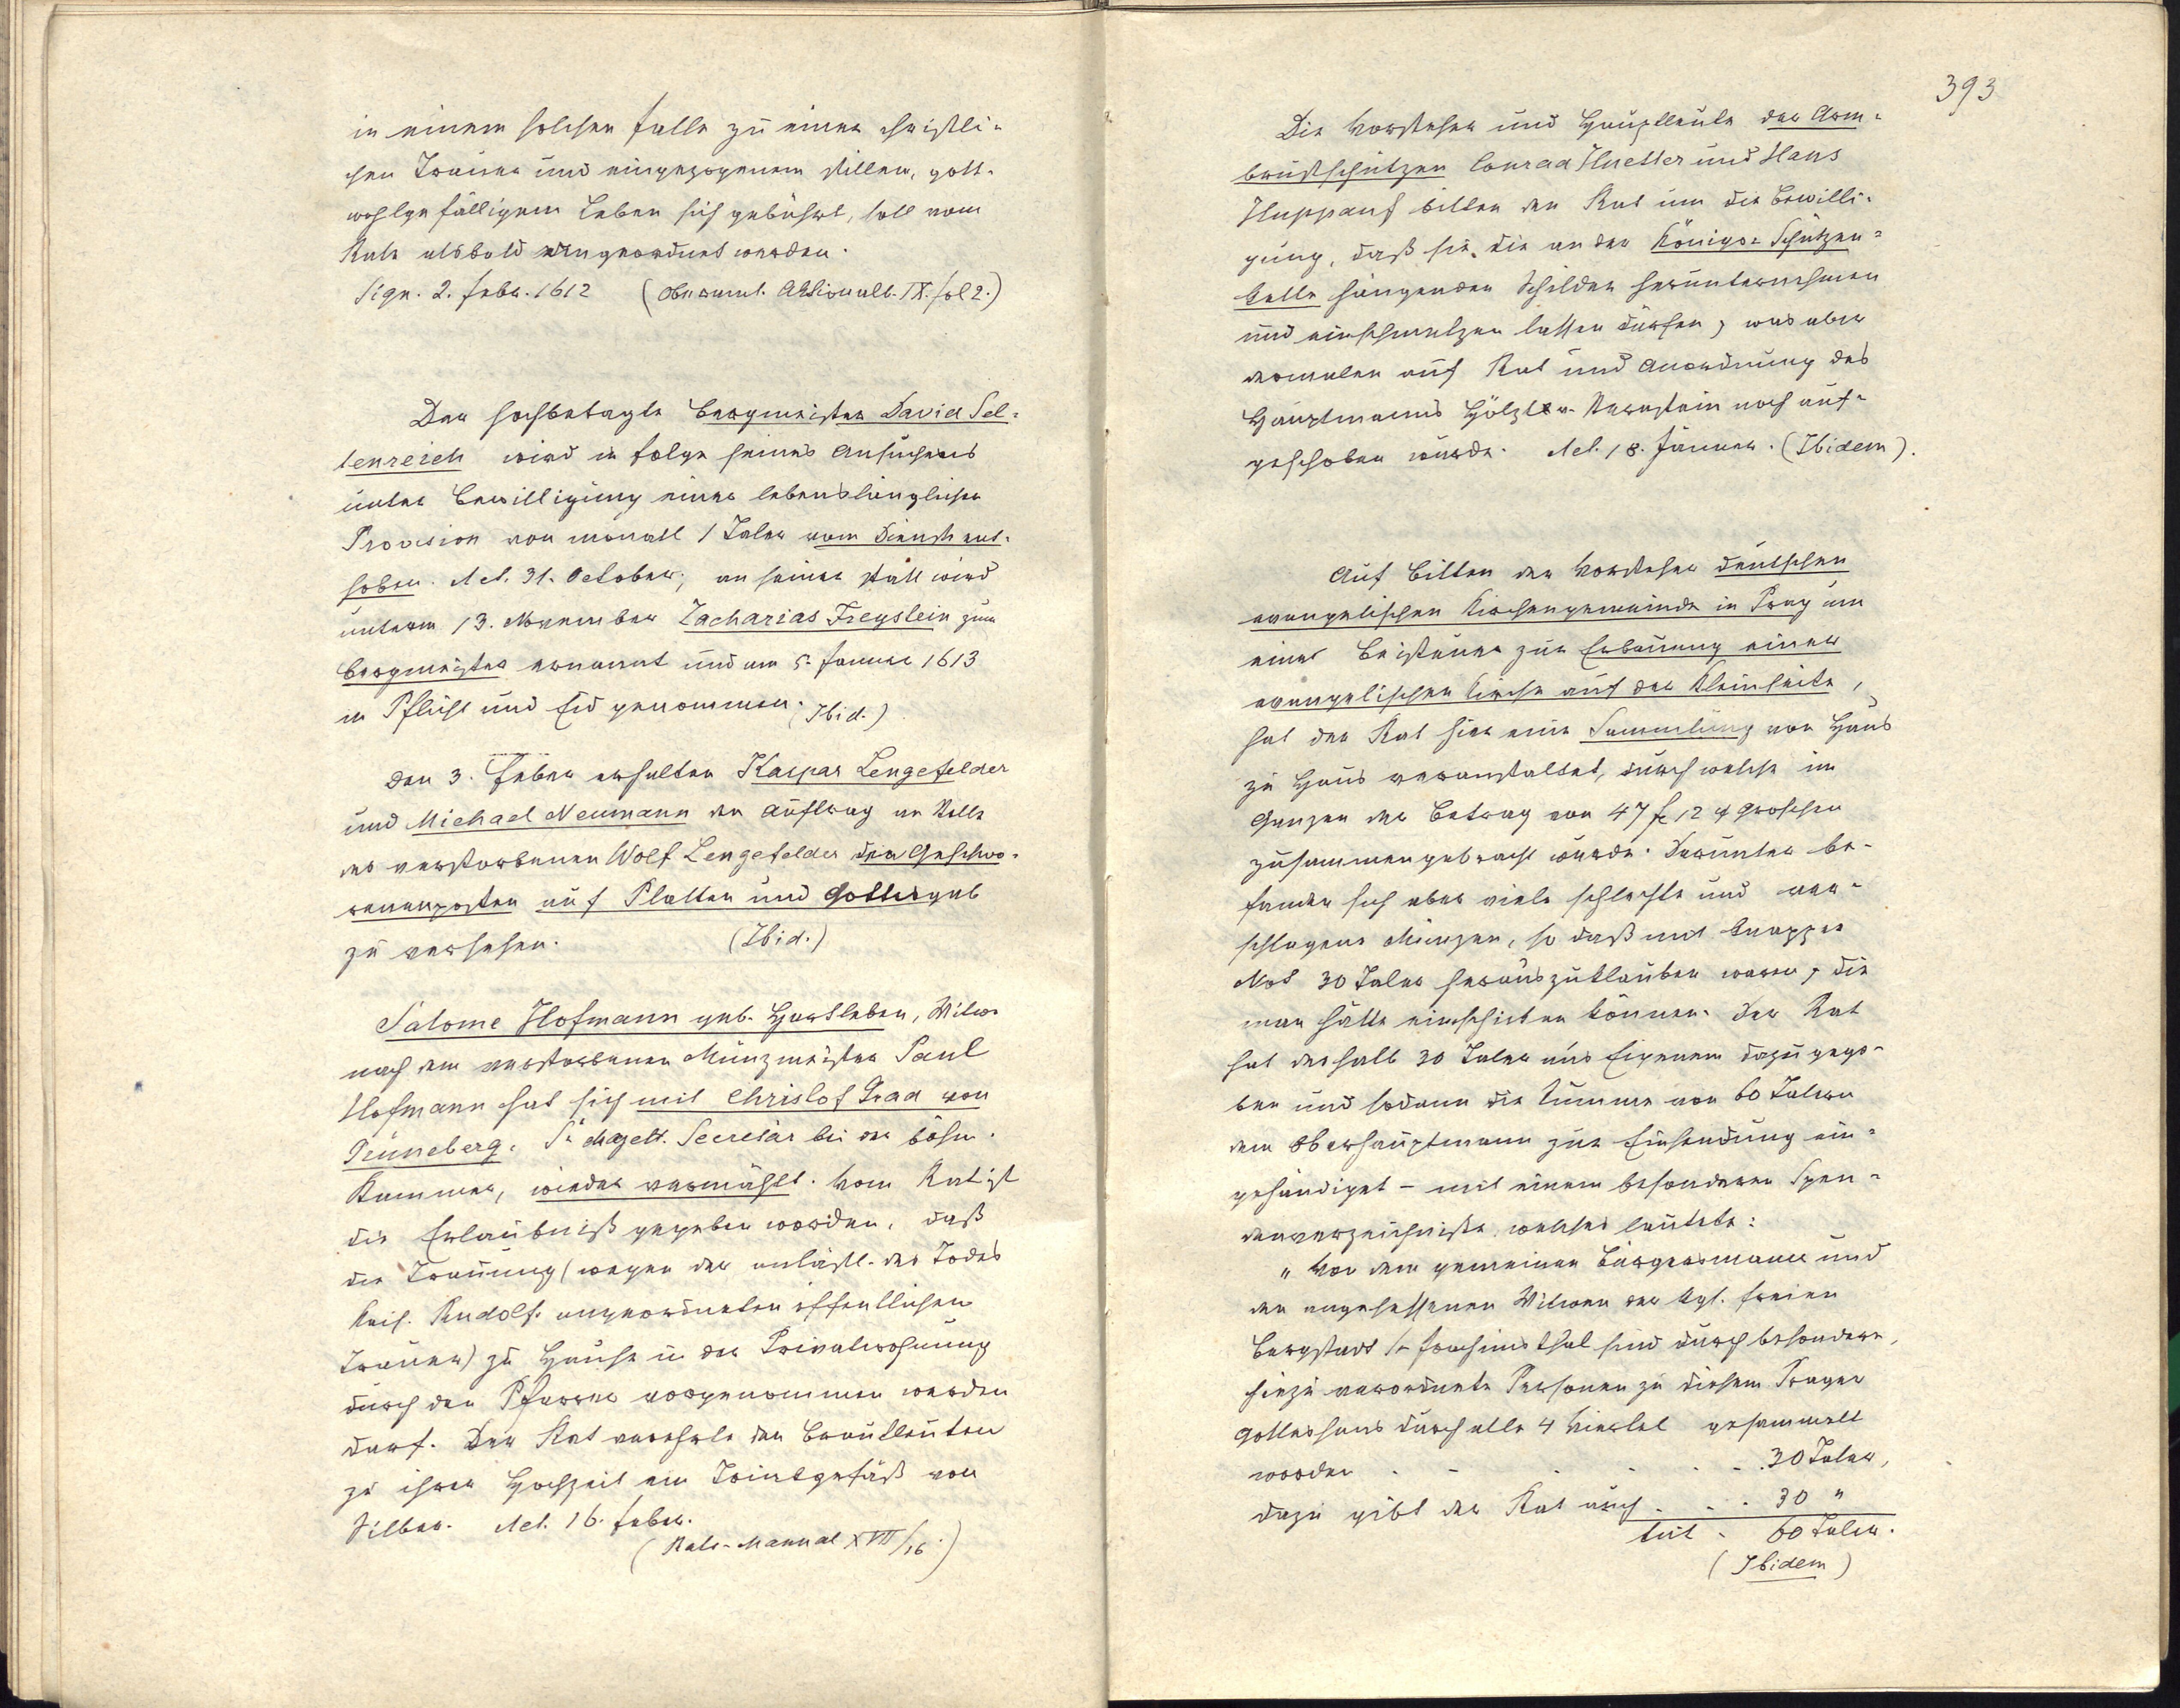 in einem solchen Falle zu einer christli-
chen Trauer und eingezogenem stillen, gott-
wohlgefälligem Leben sich gebührt, soll vom
Rate alsbald angeordnet werden.
Sign. 2. Febr. 1612 (Oberamt. Aktionalb. IX. fol 2.)
Der hochbetagte Bergmeister David Sel-
tenreich wird in Folge seines Ansuchens
unter Bewilligung einer lebenslänglichen
Provision von monatl 1 Taler vom Dienst ent-
hoben. Act. 31. October; an seiner statt wird
unterm 13. November Zacharias Freystein zum
Bergmeister ernannt und am 5. Januar 1613
in Pflicht und Eid genommen. (Ibid.)
Den 3. Feber erhalten Kaspar Lengefelder
und Michael Neumann den Auftrag an Stelle
des verstorbenen Wolf Lengefelder den Geschwo-
renenposten auf Platten und Gottesgab
zu versehen. (Ibid.)
Salome Hofmann geb. Hartleben, Witwe
nach dem verstorbenen Münzmeister Paul
Hofmann hat sich mit Christof Grad von
Grüneberg, Sr Majest. Secretär bei der böhm.
Kammer, wieder vermählt. Vom Rat ist
die Erlaubniß gegeben worden, daß
die Trauung (wegen der anläßl. des Todes
Kais. Rudolfs angeordneten öffentlichen
Trauer) zu Hause in der Privatwohnung
durch den Pfarrer vorgenommen werden
darf. Der Rat verehrte den Brautleuten
zu ihrer Hochzeit ein Trinkgefäß von
Silber. Act. 16. Feber.
(Rats-Manual XVII/16.)
393
Die Vorsteher und Hauptleute der Arm-
brustschützen Conrad Huetter und Hans
Huppauf bitten den Rat um die Bewilli-
gung, daß sie die an der Königs-Schützen-
kette hängenden Schilder herunternehmen
und einschmelzen lassen dürfen, was aber
dermalen auf Rat und Anordnung des
Hauptmanns Hölzl v. Sternstein noch auf-
geschoben wurde. Act. 18. Jänner. (Ibidem).
Auf Bitten der Vorsteher deutschen
evangelischen Kirchengemeinde in Prag um
eine Beisteuer zur Erbauung einer
evangelischen Kirche auf der Kleinseite,
hat der Rat hier eine Sammlung von Haus
zu Haus veranstaltet, durch welche im
Ganzen der Betrag von 47 f 12 Groschen
zusammengebracht wurde. Darunter be-
fanden sich aber viele schlechte und ver-
schlagene Münzen, so daß mit knapper
Not 30 Taler herauszuklauben waren, die
man hätte einschicken können. Der Rat
hat deshalb 30 Taler aus Eigenem dazu gege-
ben und sodann die Summe von 60 Talern
dem Oberhauptmann zur Einsendung ein-
gehändiget - mit einem besonderen Spen-
denverzeichniße, welches lautete:
"Von dem gemeinen Bürgersmann und
den angesessenen Witwen der kgl. freien
Bergstadt St Joachimsthal sind durch besondere,
hiezu verordnete Personen zu diesem Prager
Gotteshaus durch alle 4 Viertel gesammelt
worden . . . . . 30 Taler,
dazu gibt der Rat auch . . . 30 "
tut - 60 Taler.
(Ibidem)